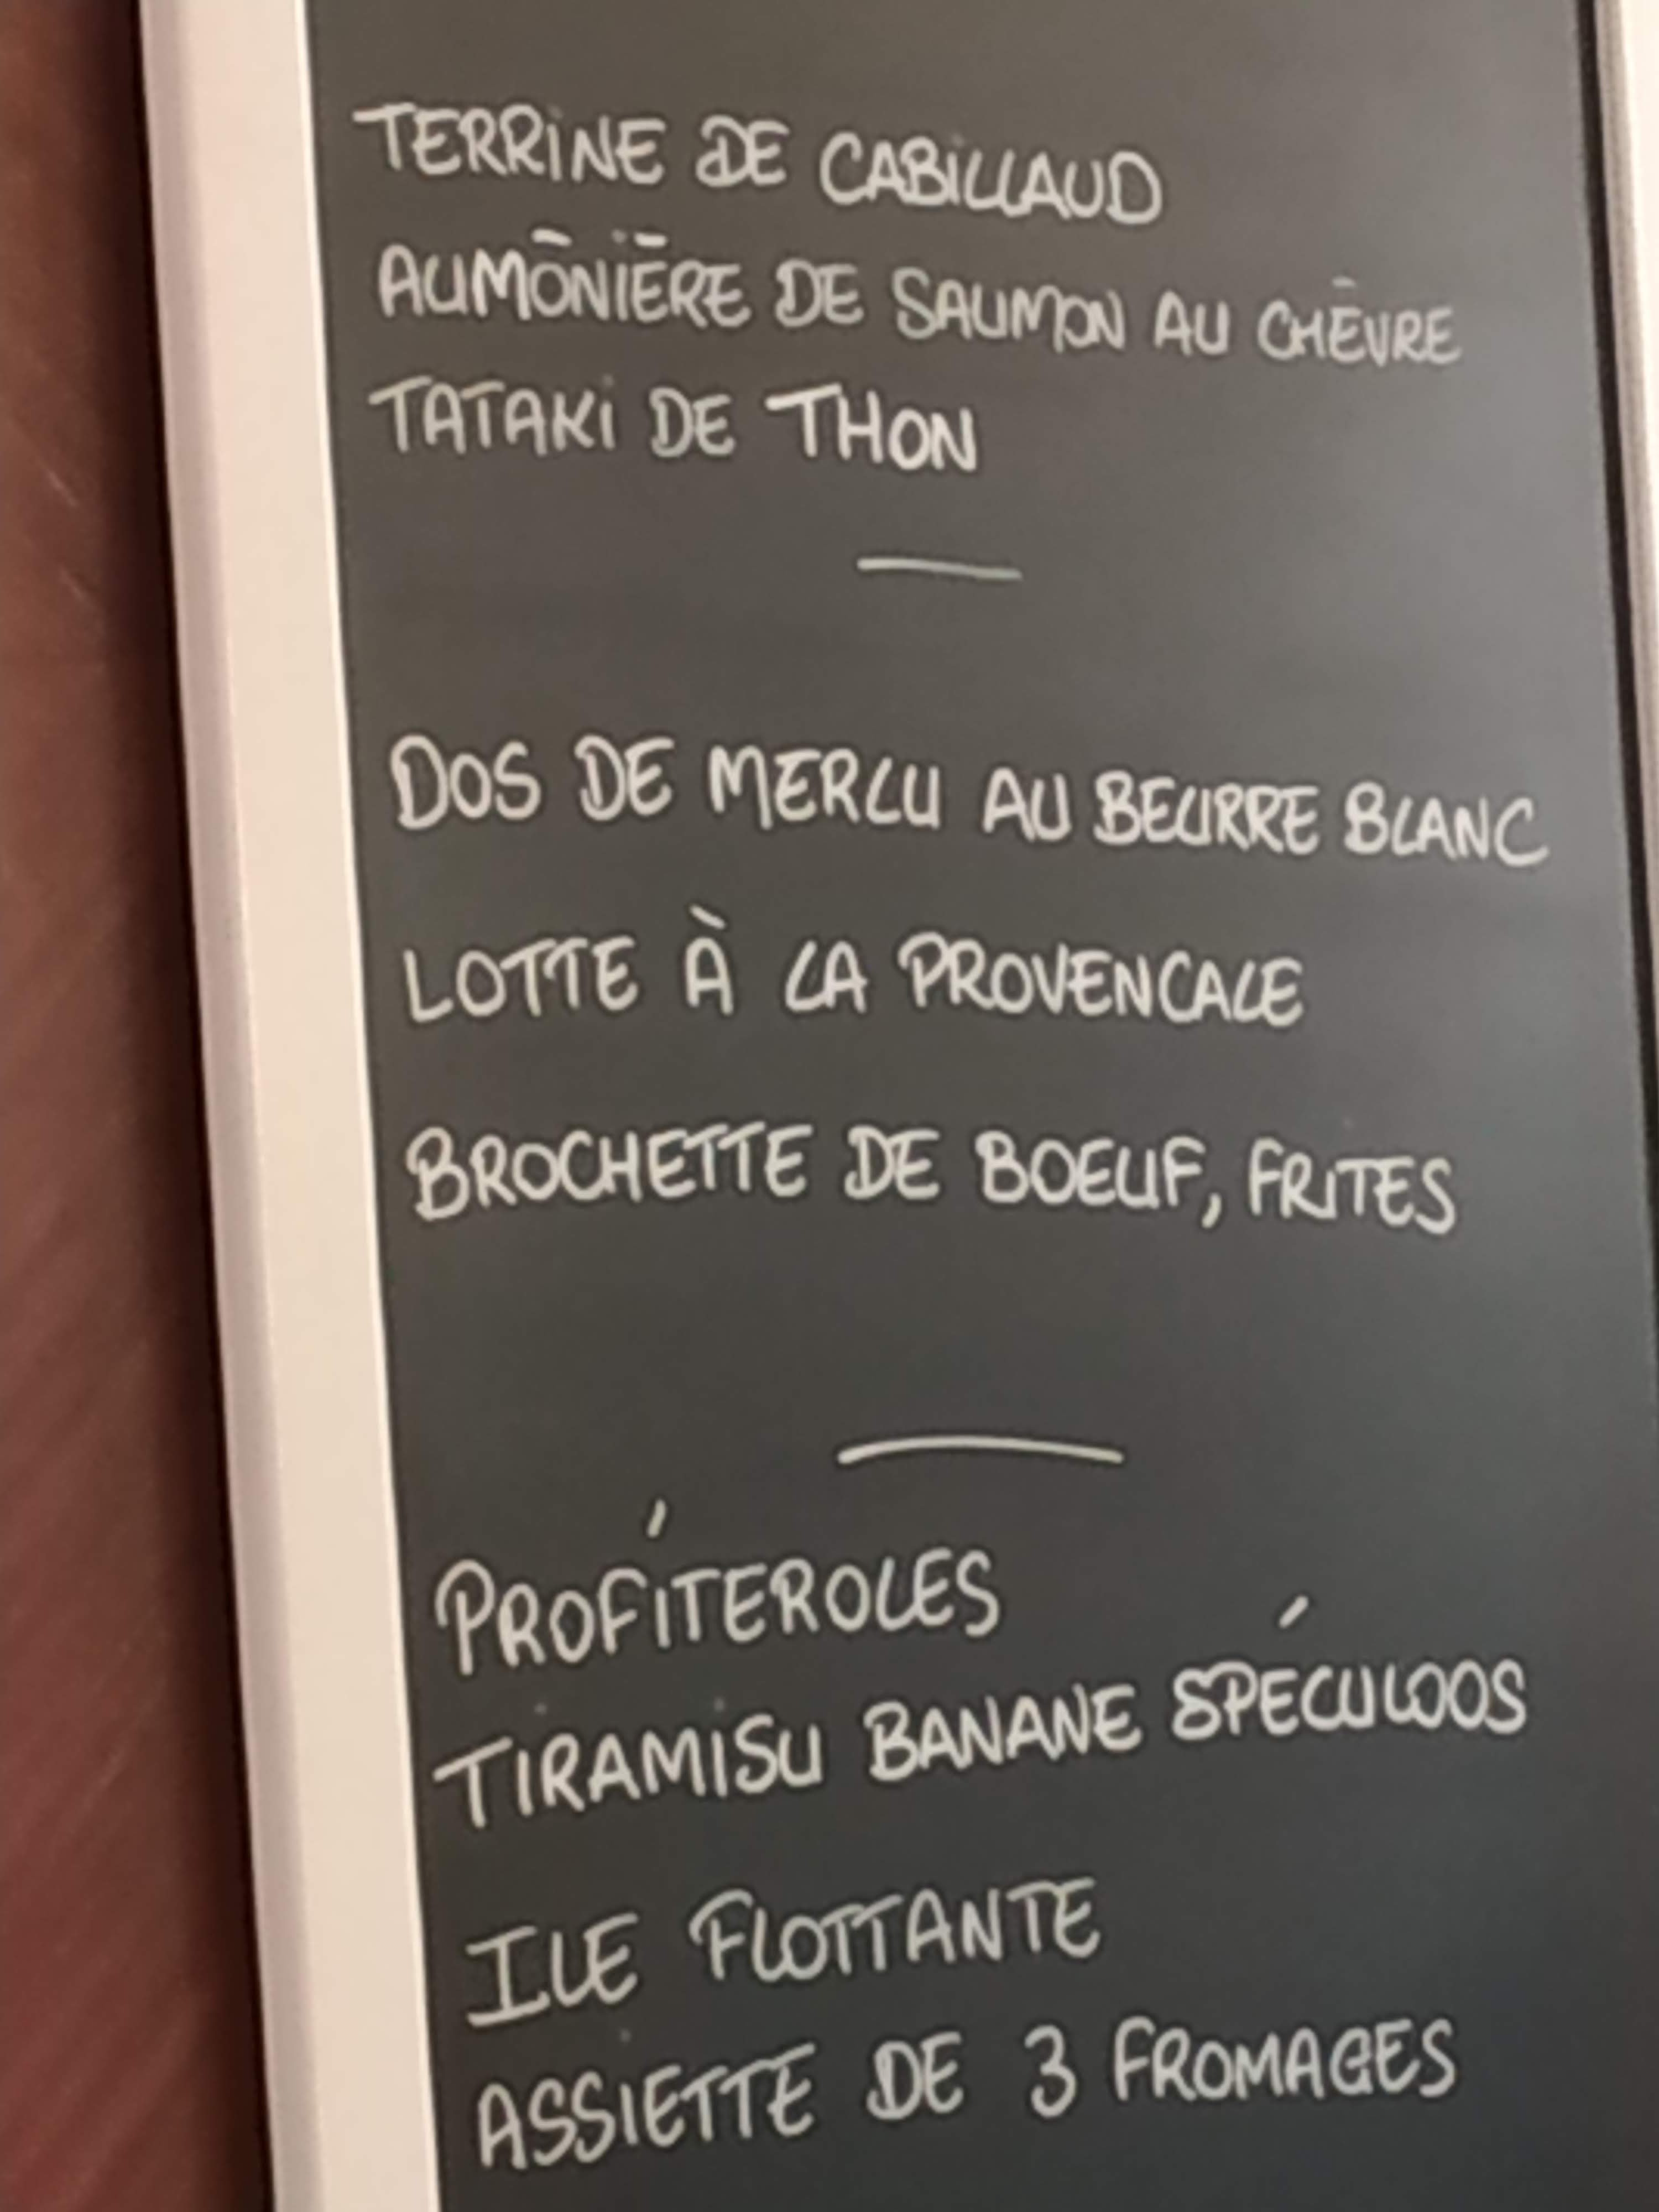 TERRINE DE CABILLAUD
AUMŌNIĒRE DE SAUMON AU CHĒVRE
TATAKI DE THON
DOS DE MERLU AU BEURRE BLANC
LOTTE À LA PROVENCALE
BROCHETTE DE BOEUF, FRITES
PROFITEROLES
TIRAMISU BANANE SPÉCULOOS
ILE FLOTTANTE
ASSIETTE DE 3 FROMAGES